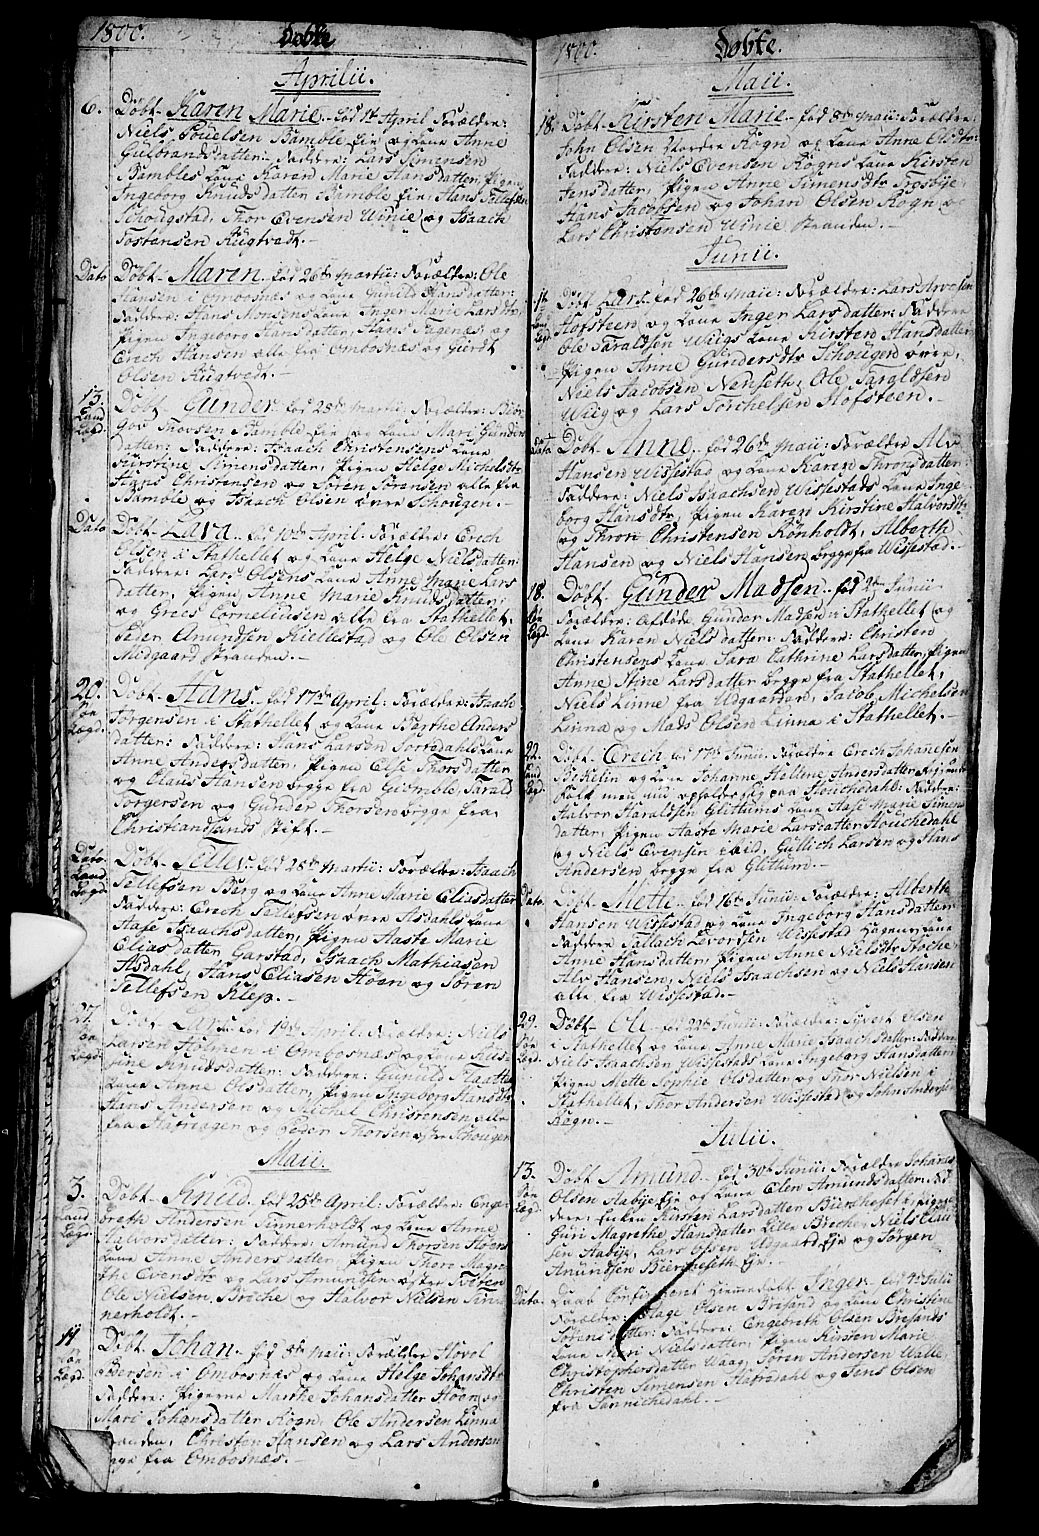 1800.
Døbte
Aprilii.
6. Døbt Karen Marie.. fød 1st April Forældre:
Niels Pouelsen Bamble Eie og Kone Anne
Gulbrandsdatter: Faddere: Lars Simensen
Bambles Kone Karen Marie Hansdatter, Pigen
Ingeborg Knudsdatter Bamble Eie, Hans Tellefsen
Schougstad, Thor Evensen Winie og Isaach
Tostensen Rugtvedt.-
Dato Døbt Maren fød 26de Martii: Forældre: Ole
Hansen i Ombosnæs og Kone Gunild Hansdatter:
Faddere: Hans Monsens Kone Inger Marie Larsdtr,
Pigen Ingeborg Hansdatter, Hans
Erech Hansen alle fra Ombosnæs og Giert
Olsen Rugtvedt.-
13.
Land
Sogd.
Døbt Gunder fød 28de Martii: Forældre: Biør
Thorsen Bamble Eie og Kone Mari Gunders
datter: Faddere: Isaach Christensens Kone
Kirstine Simensdatter, Pigen Helge Michelsdtr
Hans Christensen og Søren Sørensen alle fra
Bamble og Isaach Olsen øvre Schougen.-
Dato Døbt Lara fød 10de April: Forældre: Erech
Olsen i Stathellet og Kone Helge Nielsdatter:
Faddere: Lars Olsens Kone Anne Marie Lars
datter, Pigen Anne Marie Knudsdatter,
og Gries Corneliusen alle fra Stathellet,
Peder Amundsen Kiellestad og Ole Olsen
Midgaard Stranden.-
20. Døbt Hans fød 17de April: Forældre: Isaach
Jørgensen i Stathellet og Kone Børthe Anders
datter: Faddere: Hans Larsen Tortdahls Kone
Anne Andersdatter, Pigen Else Thorsdatter
og Claus Hansen begge fra Giømble, Tarald
Torgersen og Gunder Thorsen begge fra
Christiandsunds Stift.-
Dato
Land
Sogd.
Døbt Tellef fød 28de Martii: Forældre: Isaach
Tellefsen Berg og Kone Anne Marie Eliasdatter
Faddere: Erech Tellefsen øvre Asdahls Kone
Aase Isaachsdatter, Pigen Aaste Marie
Eliasdatter Garstad, Isaach Mathiasen
Asdahl, Hans Eliasen Høen og Søren
Tellefsen Klep.-
27. Døbt Lars fød 19de April: Forældre: Niels
Larsen i Ombosnæs og Kone
Knudsdatter: Faddere: Gunuld
Kone Anne Olsdatter, Pigen Ingeborg Hansdtr
Hans Andersen og Michel Christensen alle
fra Hafreager og Peder Thorsen øvre Schougen
Maii.
3.
Land
Sogd.
Døbt Knud fød 25de April: Forældre: Enge
breth Andersen Tinnerholdt og Kone Anne
Halvorsdatter: Faddere: Amund Thorsen Høens
Kone Anne Andersdatter, Pigen Thore Magre
the Evensdtr og Lars Amundsen, Søren
Ole Nielsen Broche og Halvor Nielsen Tin
nerholdt.-
11 Døbt Johan fød 8de Maii: Forældre Hovol
Pedersen i Ombosnæs og Kone Helge Johansdtr
Faddere: Pigerne Marthe Johansdatter Høen og
Mari Johansdatter Rogn, Ole Andersen Linna
Stranden, Christen Hansen og Lars Andersen
begge fra Ombosnæs.-
1800.
Døbte.
Maii.
18. Døbt Kirsten Marie fød 8de Maii: Forældre:
John Olsen Nordre Rogn og Kone Anne Olsdtr:
Faddere: Niels Evensen Rogns Kone Kirsten
Jensdatter, Pigen Anne Simensdtr Trosbye,
Hans Jacobsen og Johan Olsen Rogn og
Lars Christensen Winie Stranden.-
Junii.
Døbt Lars fød 26de Maii: Forældre: Lars
Hofsteen og Kone Inger Larsdatter: Faddere
Ole Taraldsen Wiigs Kone Kirsten Hansdatter,
Pigen Anne Gundersdtr Schougen øvre,
Niels Jacobsen Nenseth, Ole Taraldsen
Wiig og Lars Torchelsen Hofsteen.-
Dato Døbt Anne fød 26de Maii: Forældre Alv
Hansen Wissestad og Kone Karen Thronsdatter:
Faddere: Niels Isaachsen Wissestads Kone Inge
borg Hansdtr, Pigen Karen Kirstine Halvorsdtr
og Thron Christensen Rønholdt, Alberth
Hansen og Niels Hansen begge fra Wissestad.-
18. Døbt Gunder Madsen fød 2den Junii
Forældre: afdøde Gunder Madsen i Stathellet og
Kone Karen Nielsdatter: Faddere: Christen
Christensens Kone Sara Cathrine Larsdatter, Pigen
Anne Stine Larsdatter begge fra Stathellet,
Niels Linne fra Udgaarden, Jacob Michelsen
Linna og Mads Olsen Linna i Stathellet.-
22.
Land
Sogd.
Døbt Erech fød 17de Junii: Forældre Erech Johanesen
og Kone Johanne Hellene Andersdatter
Folk men nu opholder sig paa Houchedahl: Faddere:
Halvor Haraldsen Glittums Kone Aase Marie Simens
datter, Pigen Aaste Marie Larsdatter Houchedahl
og Niels Evensen Eiid, Gullich Larsen og Hans
Andersen begge fra Glittum.-
Dato Døbt Mette fød 16de Junii: Forældre: Alberth
Hanson Wissestad og Kone Ingeborg Hansdatter:
Faddere Tallach Levordsen Wissestad Hagens Kone
Anne Hansdatter, Pigen Anne Nielsdtr Broche,
Alv Hansen, Niels Isaachsen og Niels Hansen
alle fra Wissestad.-
29. Døbt Ole fød 22de Junii: Forældre: Syvert Olsen
i Stathellet og Kone Anne Marie Isaachsdatter: Faddere
Niels Isaachsen Wissestads Kone Ingeborg Hansdatter
Pigen Mette Sophie Olsdatter og Thor Nielsen i
Stathellet, Thor Andersen Wissestad og John Andersen
Rogn.-
Julii.
13. Døbt Amund fød 30te Junii: Forældre Johanes
Olsen Aabye Eje og Kone Elen Amundsdatter: Fad
dere: Enken Kirsten Larsdatter Bierchesett, Pigen
Guri Magrethe Hansdatter Lille Broche, Niels Clau
sen Aabye, Lars Olsen Udgaard Eje og Jørgen
Amundsen Biercheseth Eje.-
Dato Daab Confirmeret hiemmedøbt Inger fød 4de Julii
Forældre: Aage Olsen Bresand og Kone Christine
Sørensdatter: Faddere: Engebreth Olsen Bresands
Kone Mari Nielsdatter, Pigen Kirsten Marie
Christophersdatter Waag, Søren Andersen Walle
Christen Simensen Hafredahl og Jens Olsen
fra Sannichedahl.-